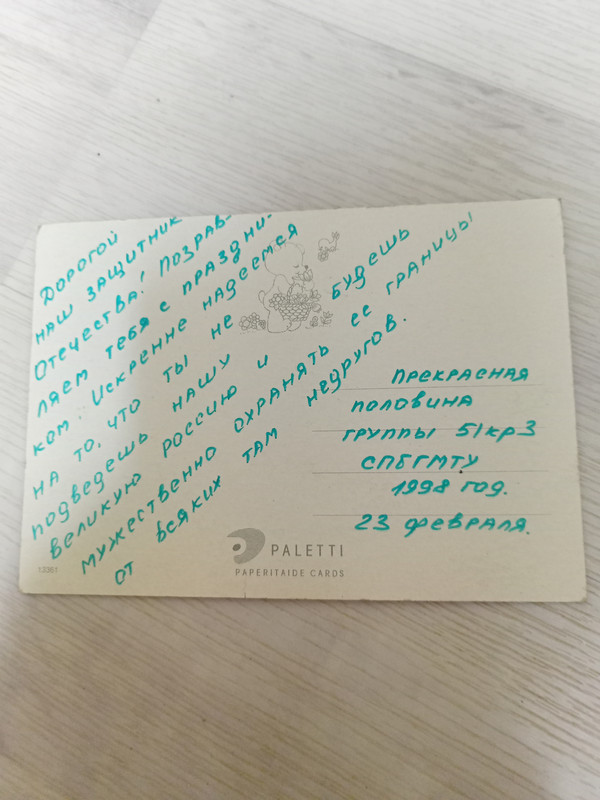 Дорогой
наш защитник
Отечества! Позрав-
ляем тебя с праздни-
ком. Искренне надеемся
на то, что ты не будешь
подведешь нашу
великую Россию и
мужественно охранять ее границы
от всяких там недругов.
Прекрасная
половина
группы 51кр3
СПбГМТУ
1998 год.
23 февраля.
PALETTI
PAPERITAIDE CARDS
13361